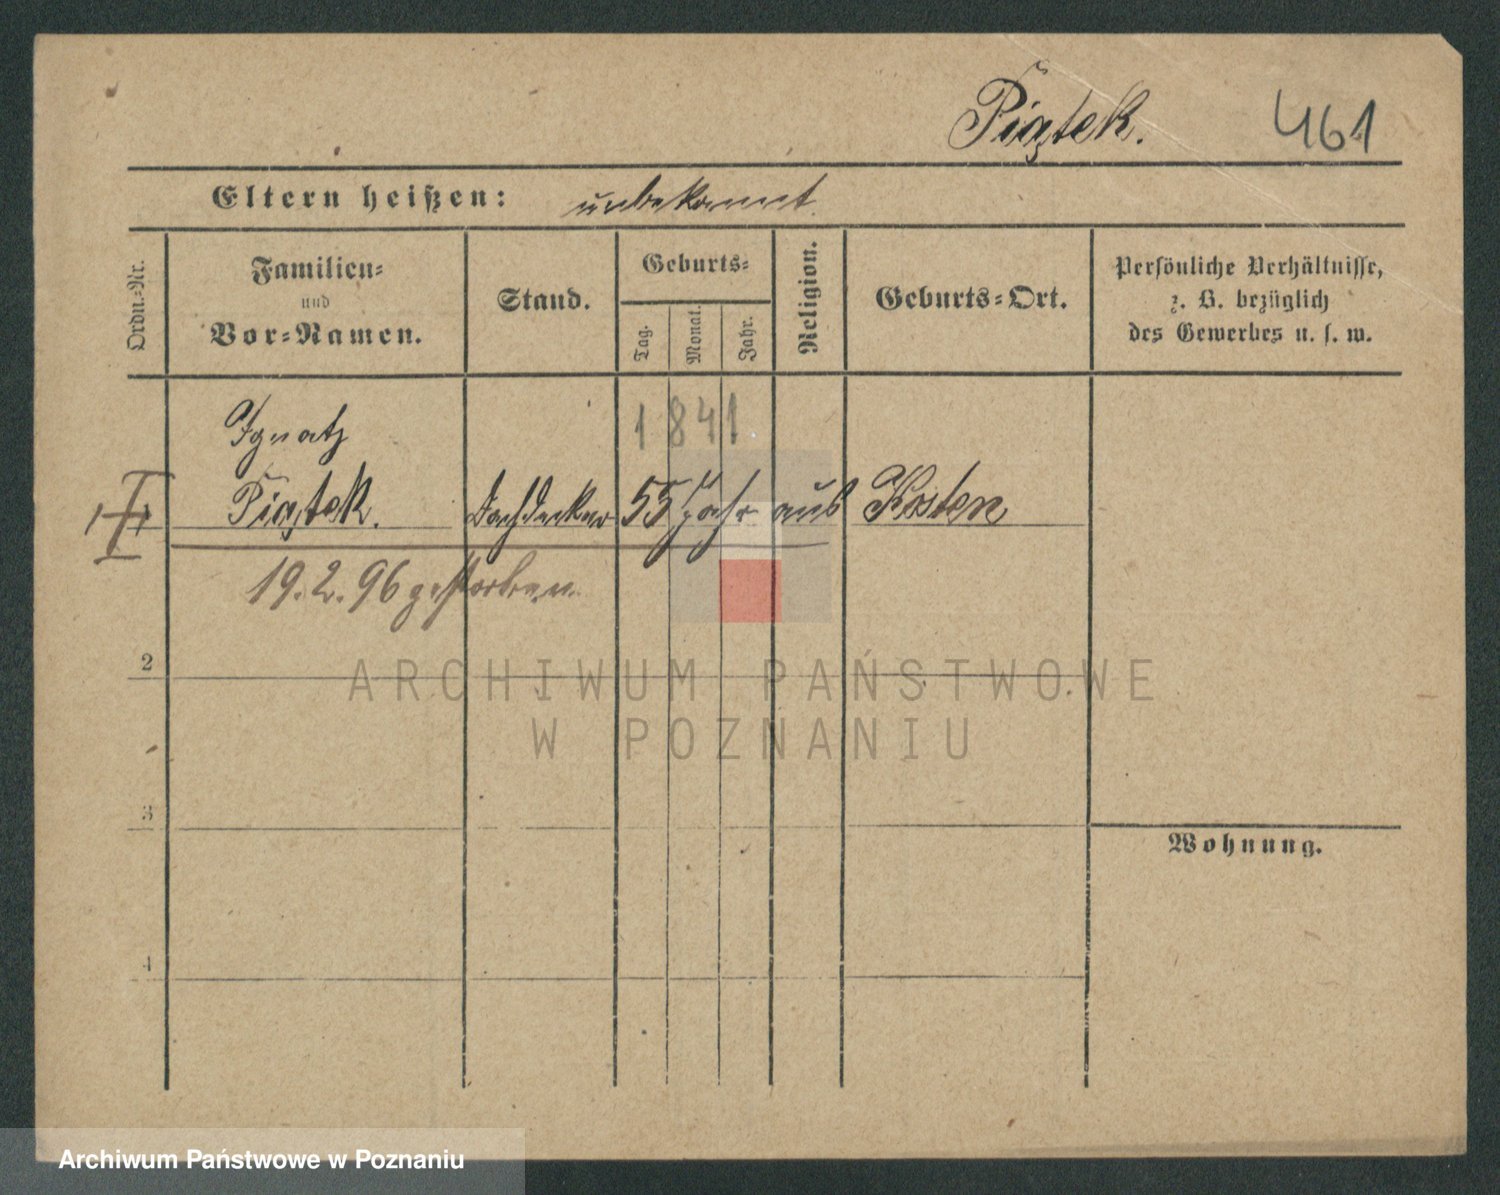 Piątek. 461
Eltern heißen: unbekannt
Ordn.-Nr.
Familien-
und
Vor-Namen.
Stand.
Geburts-
Tag.
Monat.
Jahr.
Religion.
Geburts-Ort.
Persönliche Verhältnisse,
z. B. bezüglich
des Gewerbes u. s. w.
1841
Ignatz
Piątek. Dachdecker 55 Jahr aus Kosten
1
19.2.96 gestorben
2
3
4
Wohnung.
ARCHIWUM PAŃSTWOWE
W POZNANIU
Archiwum Państwowe w Poznaniu